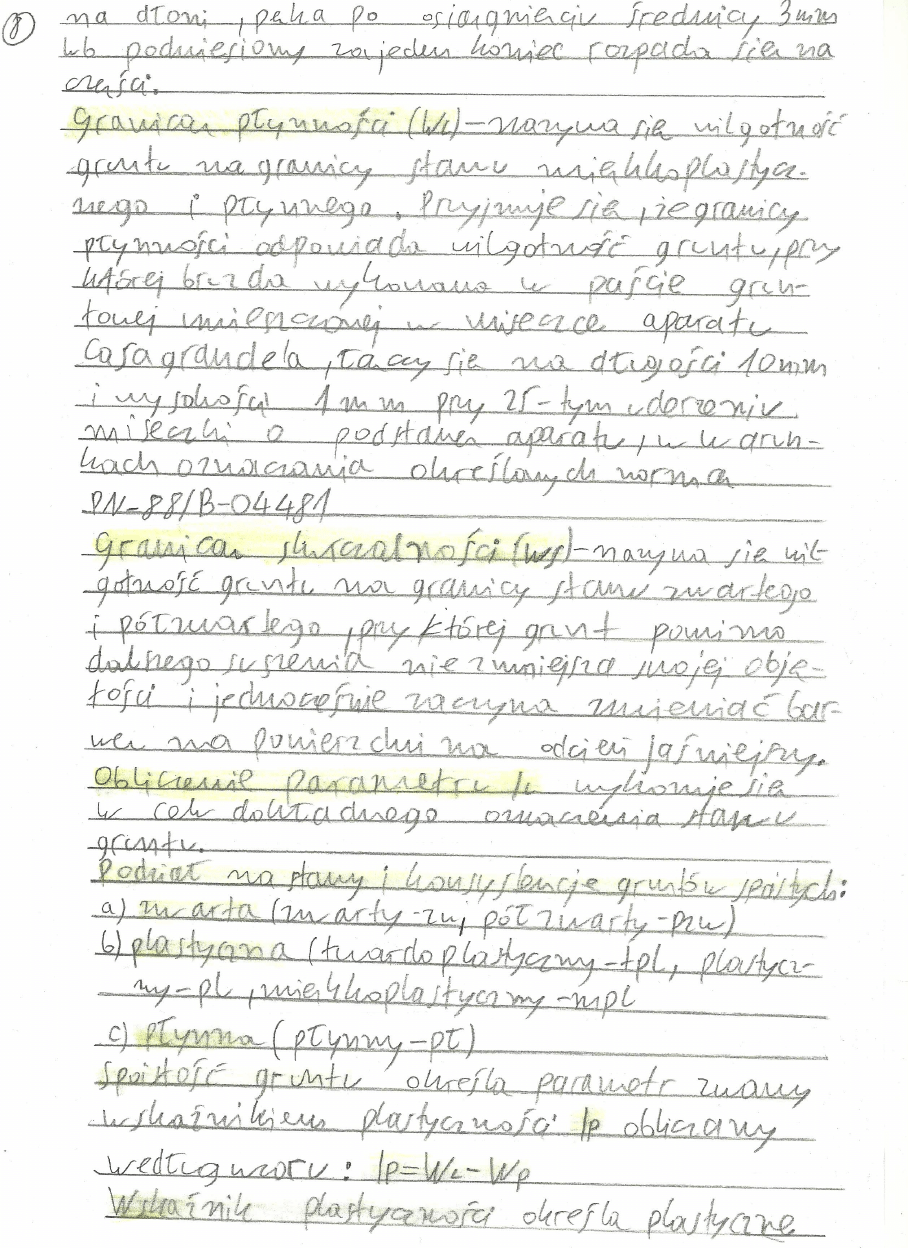 8
na dłoni, pęka po osiągnięciu średnicy 3mm
lub podniesiony za jeden koniec rozpada się na
części.
Granica płynności (WL) – nazywa się wilgotność
gruntu na granicy stanu miękkoplastycz-
nego i płynnego. Przyjmuje się, że granicy
płynności odpowiada wilgotność gruntu, przy
której bruzda wykonana w paście grun-
towej umieszczonej w miseczce aparatu
Casagrande'a, łączy się na długości 10mm
i wysokości 1mm przy 25-tym uderzeniu
miseczki o podstawę aparatu, w warun-
kach oznaczania określonych normą
PN-88/B-04481
Granica skurczalności (ws) – nazywa się wil-
gotność gruntu na granicy stanu zwartego
i półzwartego, przy której grunt pomimo
dalszego suszenia nie zmniejsza swojej obję-
tości i jednocześnie zaczyna zmieniać bar-
wę na powierzchni na odcień jaśniejszy.
Obliczenie parametru IL wykonuje się
w celu dokładnego oznaczenia stanu
gruntu.
Podział na stany i konsystencje gruntów spoistych:
a) zwarta (zwarty-zw, półzwarty-pzw)
b) plastyczna (twardoplastyczny-tpl, plastycz-
ny-pl, miękkoplastyczny-mpl
c) płynna (płynny-pł)
Spoistość gruntu określa parametr zwany
wskaźnikiem plastyczności Ip obliczany
według wzoru: Ip=WL-Wp
Wskaźnik plastyczności określa plastyczne